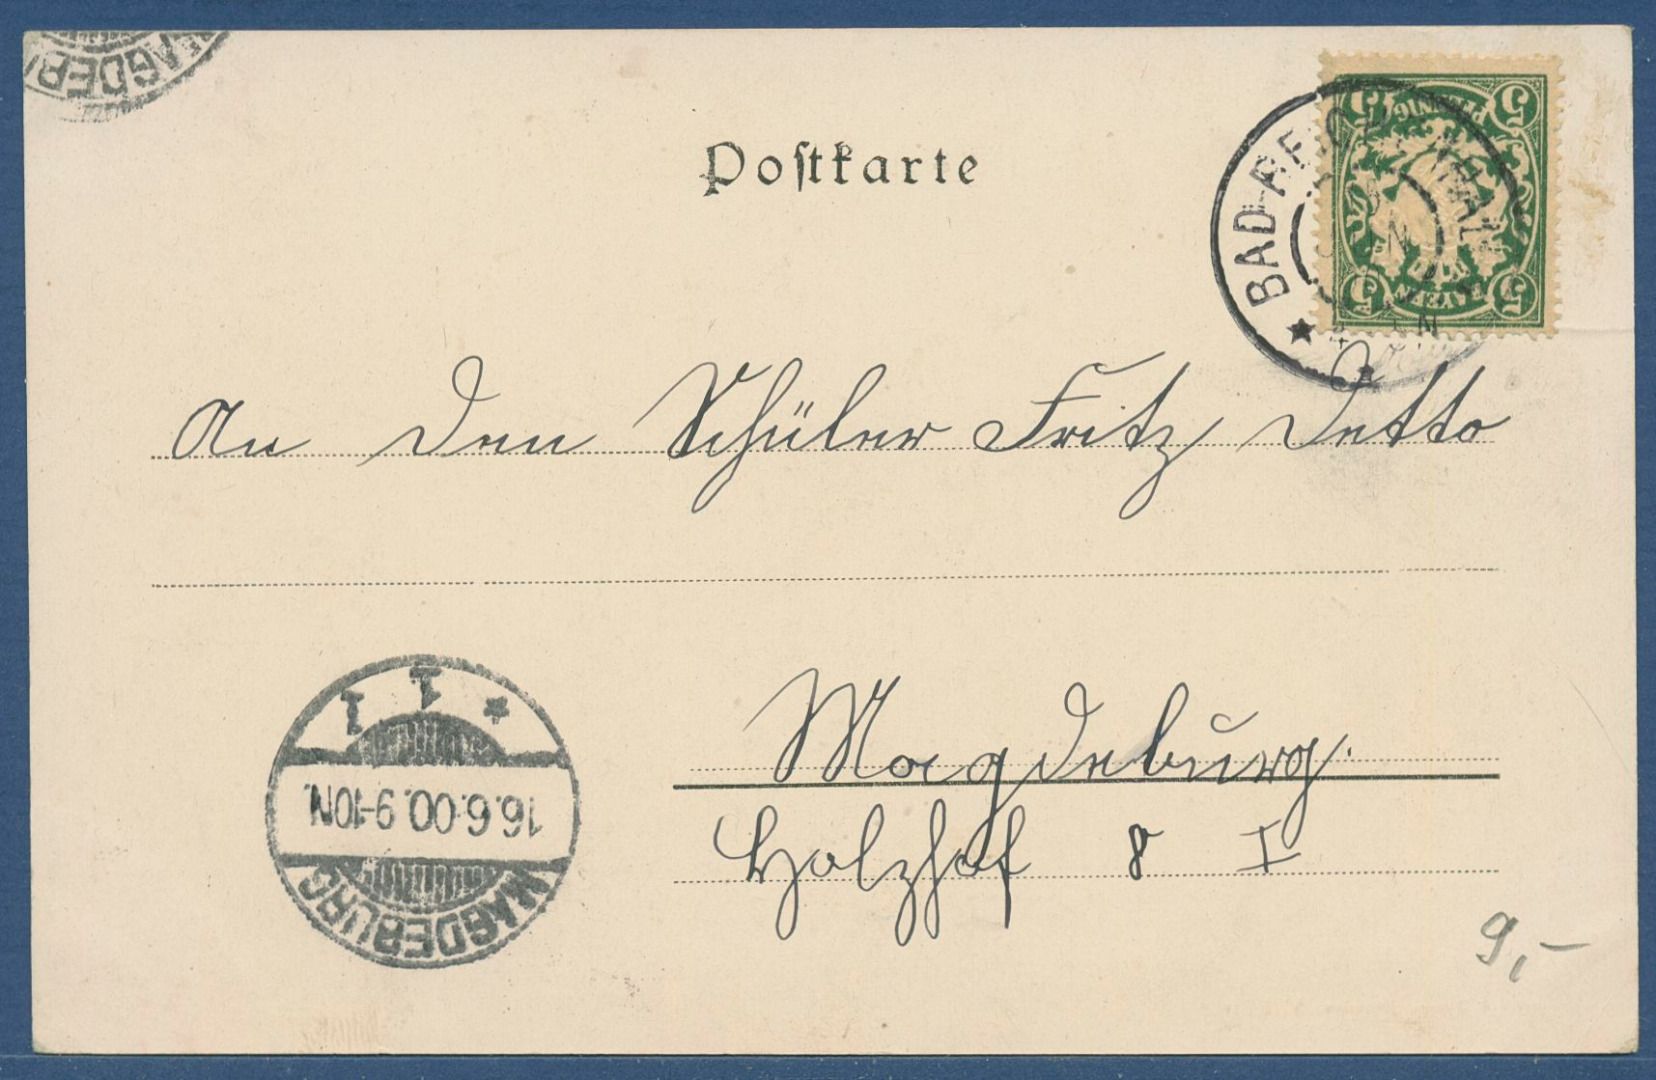 MAGDEBU
Postkarte
5 PFENNIG 5
5 BAYERN 5
BAD REICHENHALL
An den Schüler Fritz Detto
Magdeburg.
Holzhof 8 I
* 1 1
16.6.00.9-10N.
MAGDEBURG
9,-